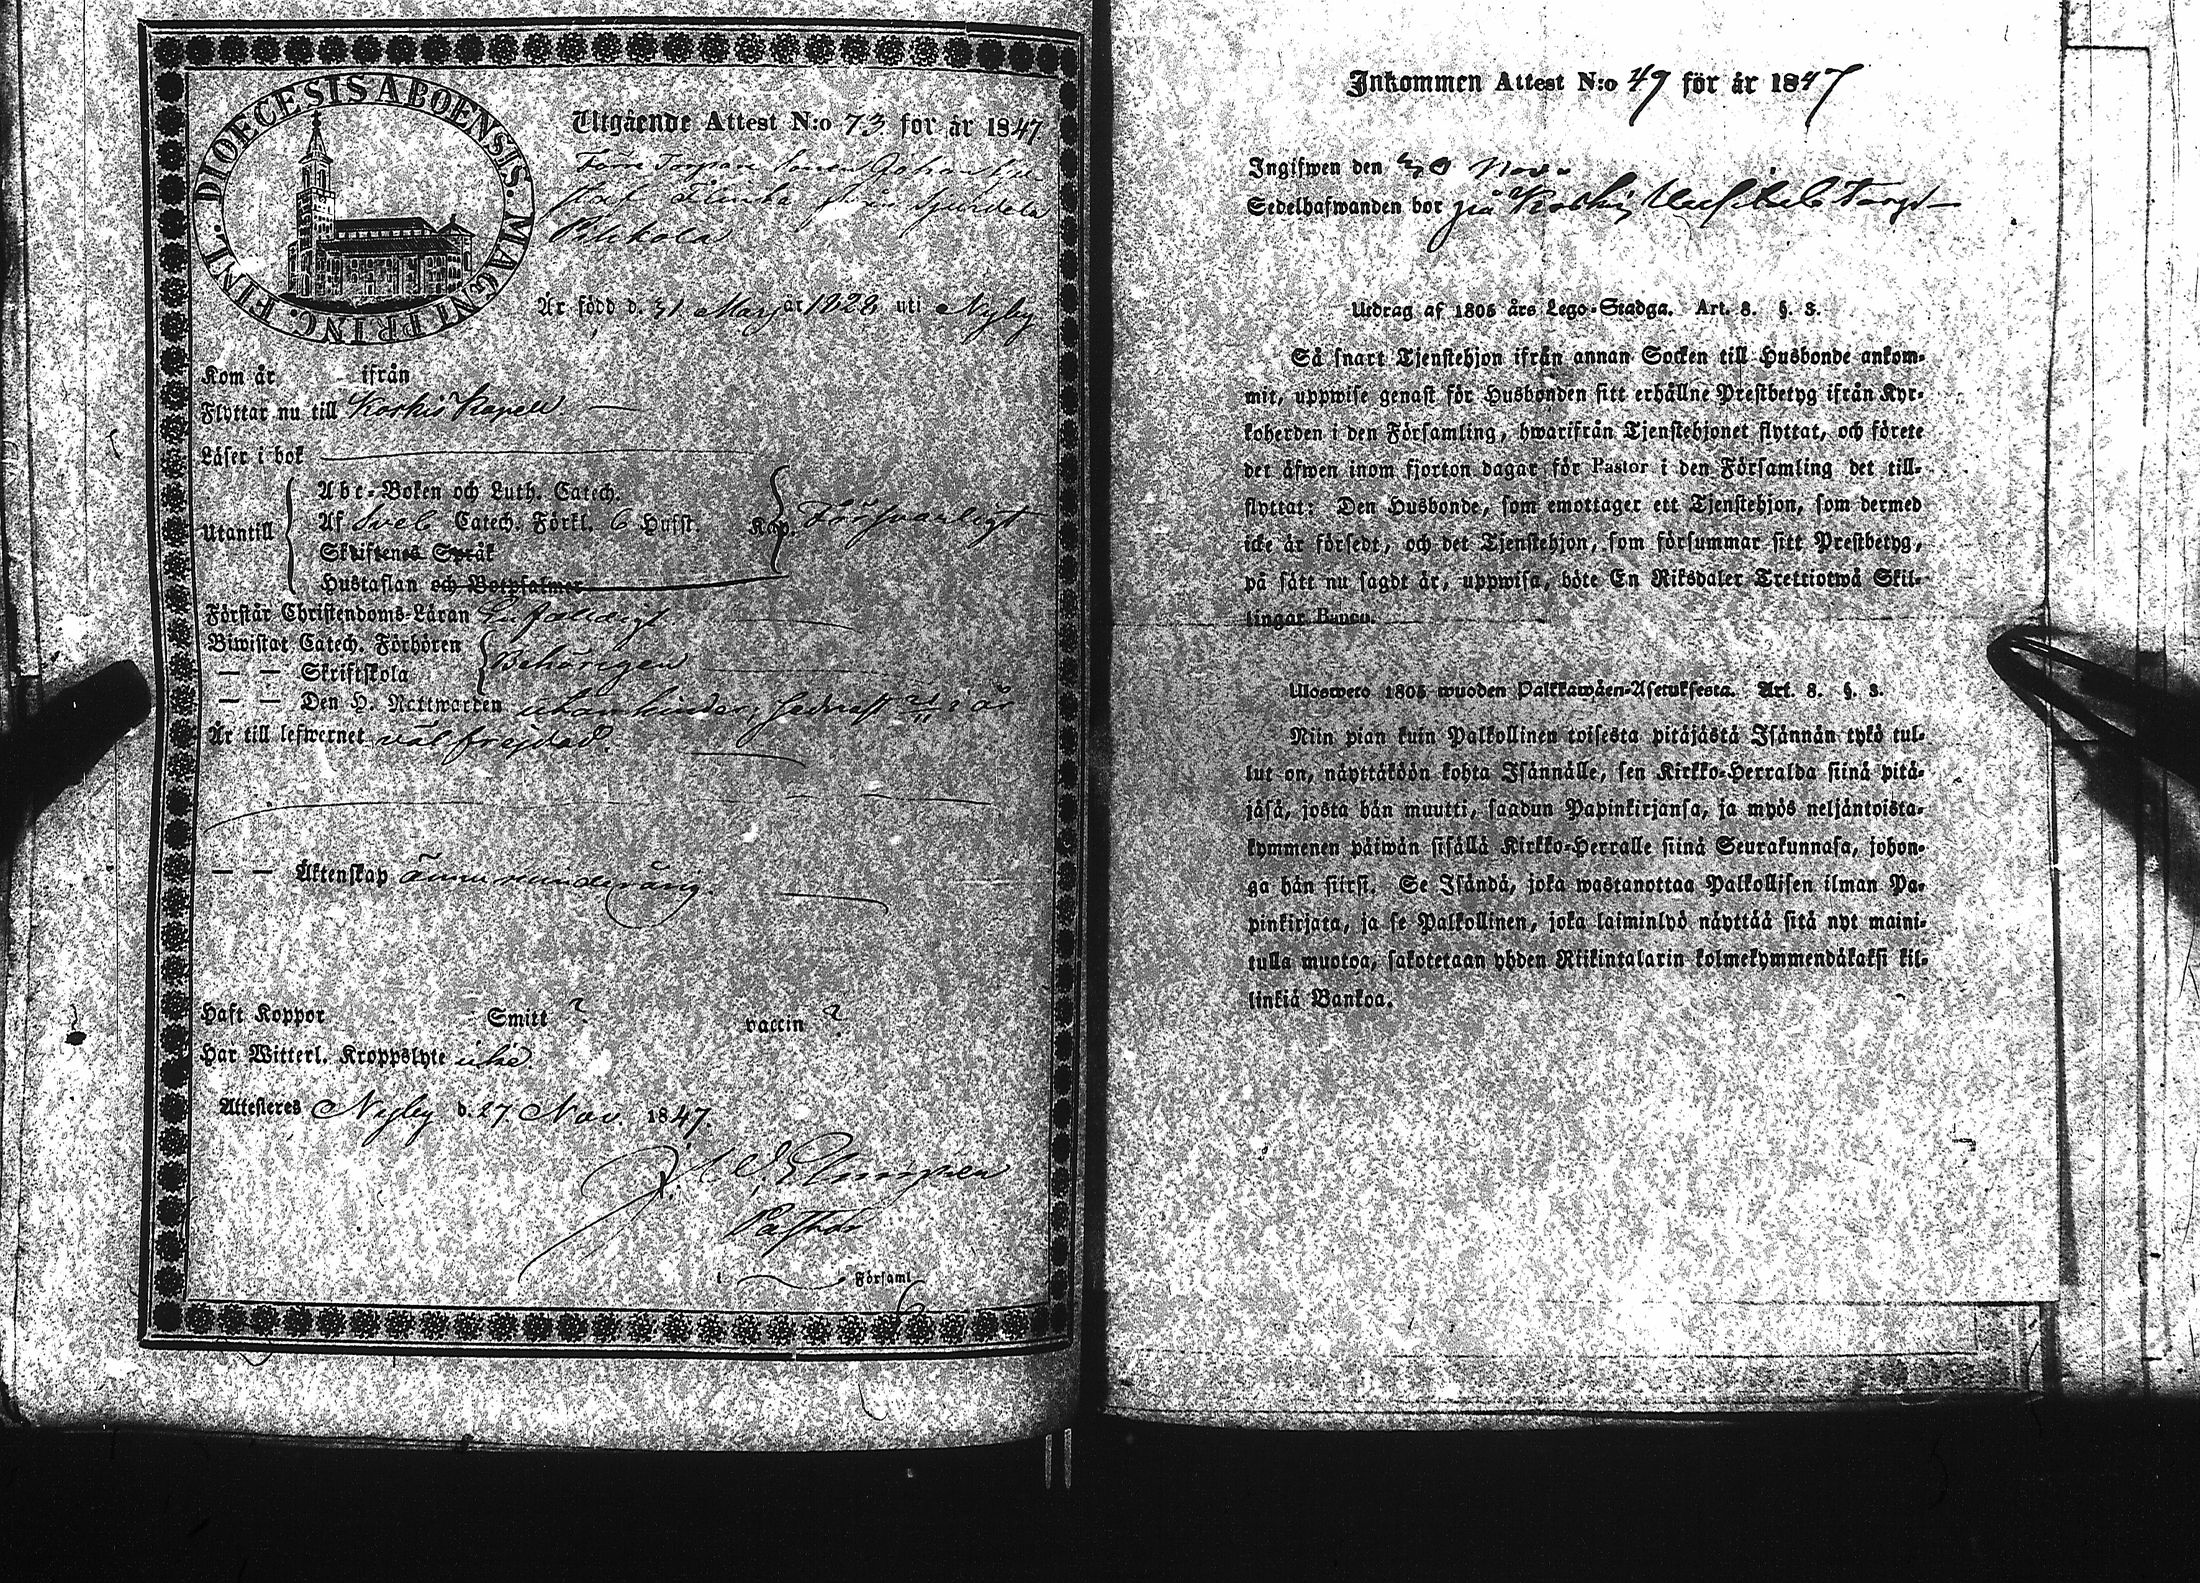 DIOECESIS ABOENSIS. MAGNI PRINC. FINL.
Utgående Attest N:o 73 för år 1847
Förre Torpare Sonen Johan Gu-
staf från
Är född d. 31 Maij år 1828 uti Nyby
Kom år ifrån
Flyttar nu till Koskis Kapell
Läser i bok
Utantill
Abc-Boken och Luth. Catech.
Af Sveb Catech. Förkl. 6 Husst. Kap. Försvarligt
Skriftenes Språk
Hustaflan och Botpsalmer
Förstår Christendoms-Läran Enfaldigt
Biwistat Catech. Förhören
— — Skriftskola Behörigen
— — Den H. Nattwarden utan hinder, sednast 21/11 i år
Är till lefwernet väl frejdad.
— — Äktenskap ännu underårig.
Haft Koppor Smitt ? vaccin ?
Har Witterl. Kroppslyte icke.
Attesteras Nyby d. 27. Nov. 1847.
i Församl
Inkommen Attest N:o 49 för år 1847
Ingifwen den 30 Nov.
Sedelhafwanden bor på Koskis Torp
Utdrag af 1805 års Lego-Stadga. Art. 8. §. 3.
Så snart Tjenstehjon ifrån annan Socken till Husbonde ankom-
mit, uppwise genast för Husbonden sitt erhållne Prestbetyg ifrån Kyr-
koherden i den Församling, hwarifrån Tjenstehjonet flyttat, och förete
det äfwen inom fjorton dagar för Pastor i den Församling det till-
flyttat: Den Husbonde, som emottager ett Tjenstehjon, som dermed
icke är försedt, och det Tjenstehjon, som försummar sitt Prestbetyg,
på sätt nu sagdt är, uppwisa, böte En Riksdaler Trettiotwå Skil-
lingar Banco.
Ulosweto 1805 wuoden Palkkawäen-Asetuksesta. Art. 8. §. 3.
Niin pian kuin Palkollinen toisesta pitäjästä Isännän tykö tul-
lut on, näyttäköön kohta Isännälle, sen Kirkko-Herralda siinä pitä-
jäsä, josta hän muutti, saadun Papinkirjansa, ja myös neljäntoista-
kymmenen päiwän sisällä Kirkko-Herralle siinä Seurakunnasa, johon-
ga hän siirsi. Se Isändä, joka wastanottaa Palkollisen ilman Pa-
pinkirjata, ja se Palkollinen, joka laiminlyö näyttää sitä nyt maini-
tulla muotoa, sakotetaan yhden Riikintalarin kolmekymmendäkaksi kil-
linkiä Bankoa.